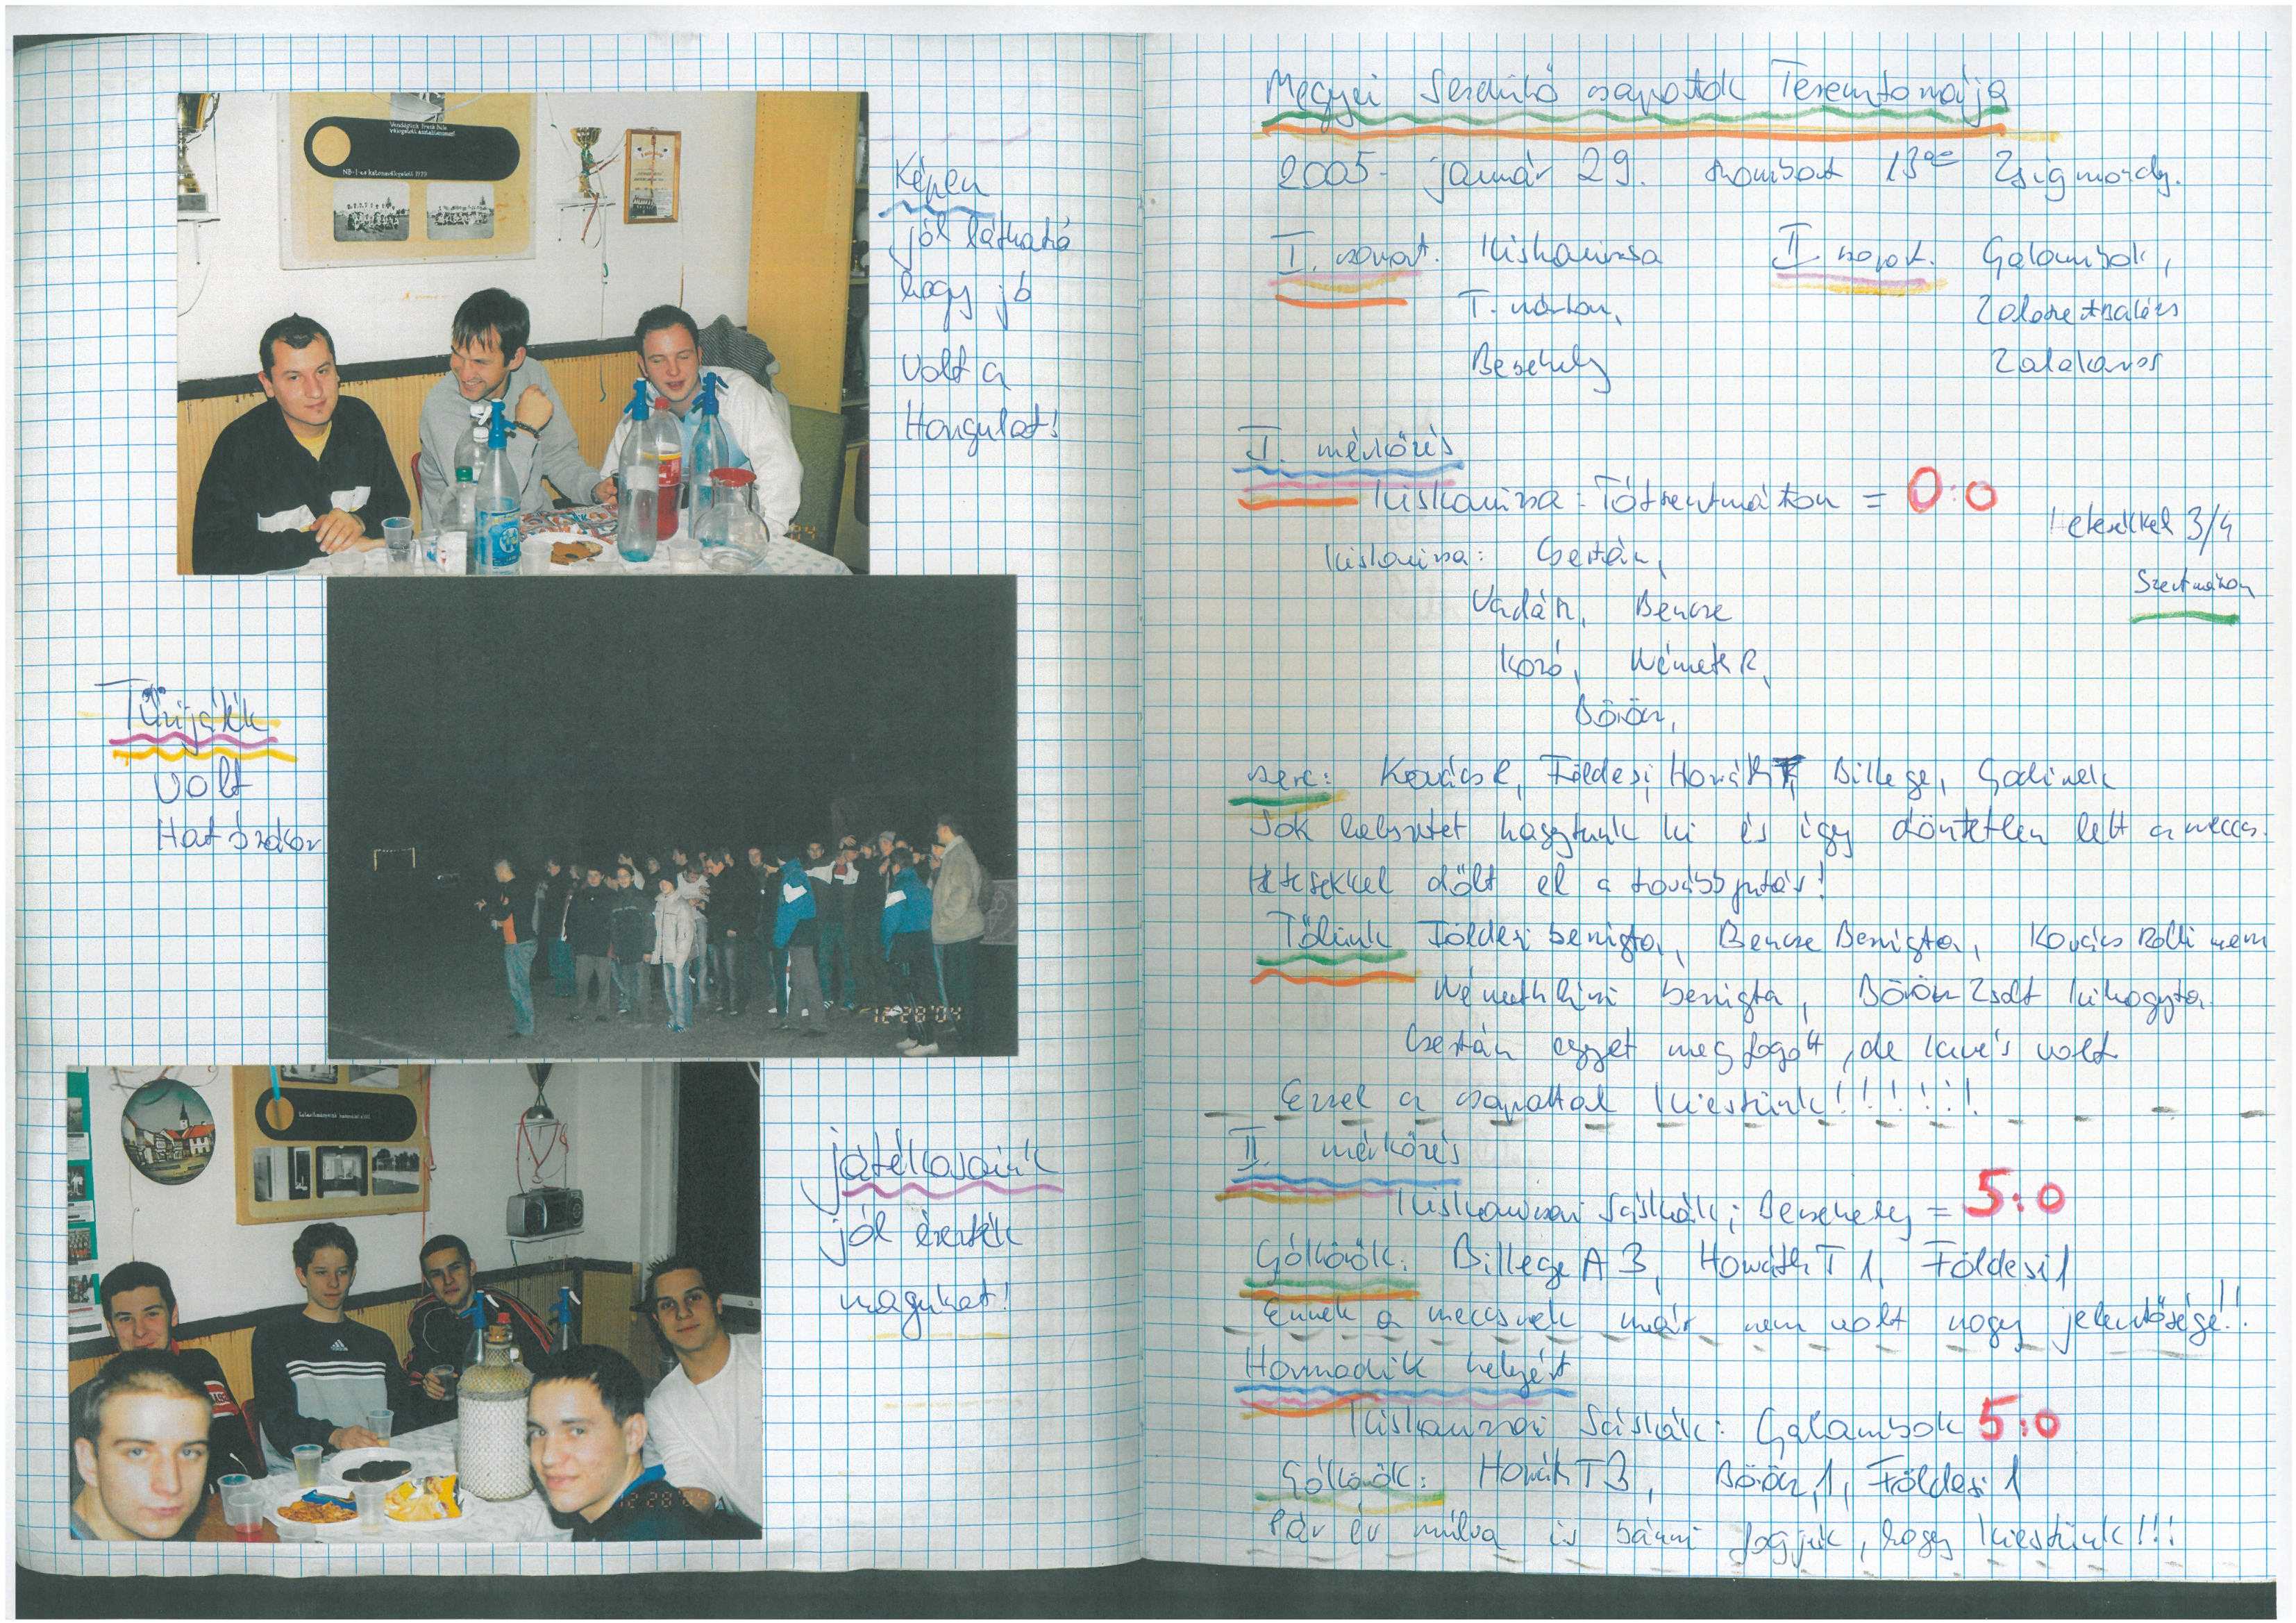 Képen
jól látható
hogy jó
volt a
Hangulat!
Tűzijáték
volt
Hat órakor
játékosaink
jól érezték
magukat!
12 28 '04
12 28 '0
Megyei Serdülő csapatok Teremtornája
2005. január 29. szombat 13 Zsigmondy.
I. csoport. Kiskanizsa
T. márton,
Becsehely
II csoport. Galambok,
Zalaszentbalázs
Zalakaros
I. mérkőzés
Kiskanizsa : Tótszentmárton = 0:0
Hetesekkel 3/4
Szentmárton
Kiskanizsa: Csertán,
Vadár, Bencze
Kozó, Németh R,
Bödör,
csere: Kovács R, Földesi, Horváth T, Billege, Godinek
Sok helyzetet hagytunk ki és így döntetlen lett a meccs.
Hetesekkel dőlt el a továbbjutás!
Tőlünk Földesi berúgta, Bencze Berúgta, Kovács Rolli nem
Németh berúgta, Bödör Zsolt kihagyta.
Csertán egyet megfogott, de kevés volt
Ezzel a csapattal kiestünk!!!!!!!
II. mérkőzés
Kiskanizsai Sáskák : Becsehely = 5:0
Góllövők: Billege A 3, Horváth T 1, Földesi 1
Ennek a meccsnek már nem volt nagy jelentősége!!
Harmadik helyért
Kiskanizsai Sáskák : Galambok 5:0
Góllövők: Horváth T 3, Bödör, 1, Földesi 1
Pár év múlva is bánni fogjuk, hogy kiestünk!!!